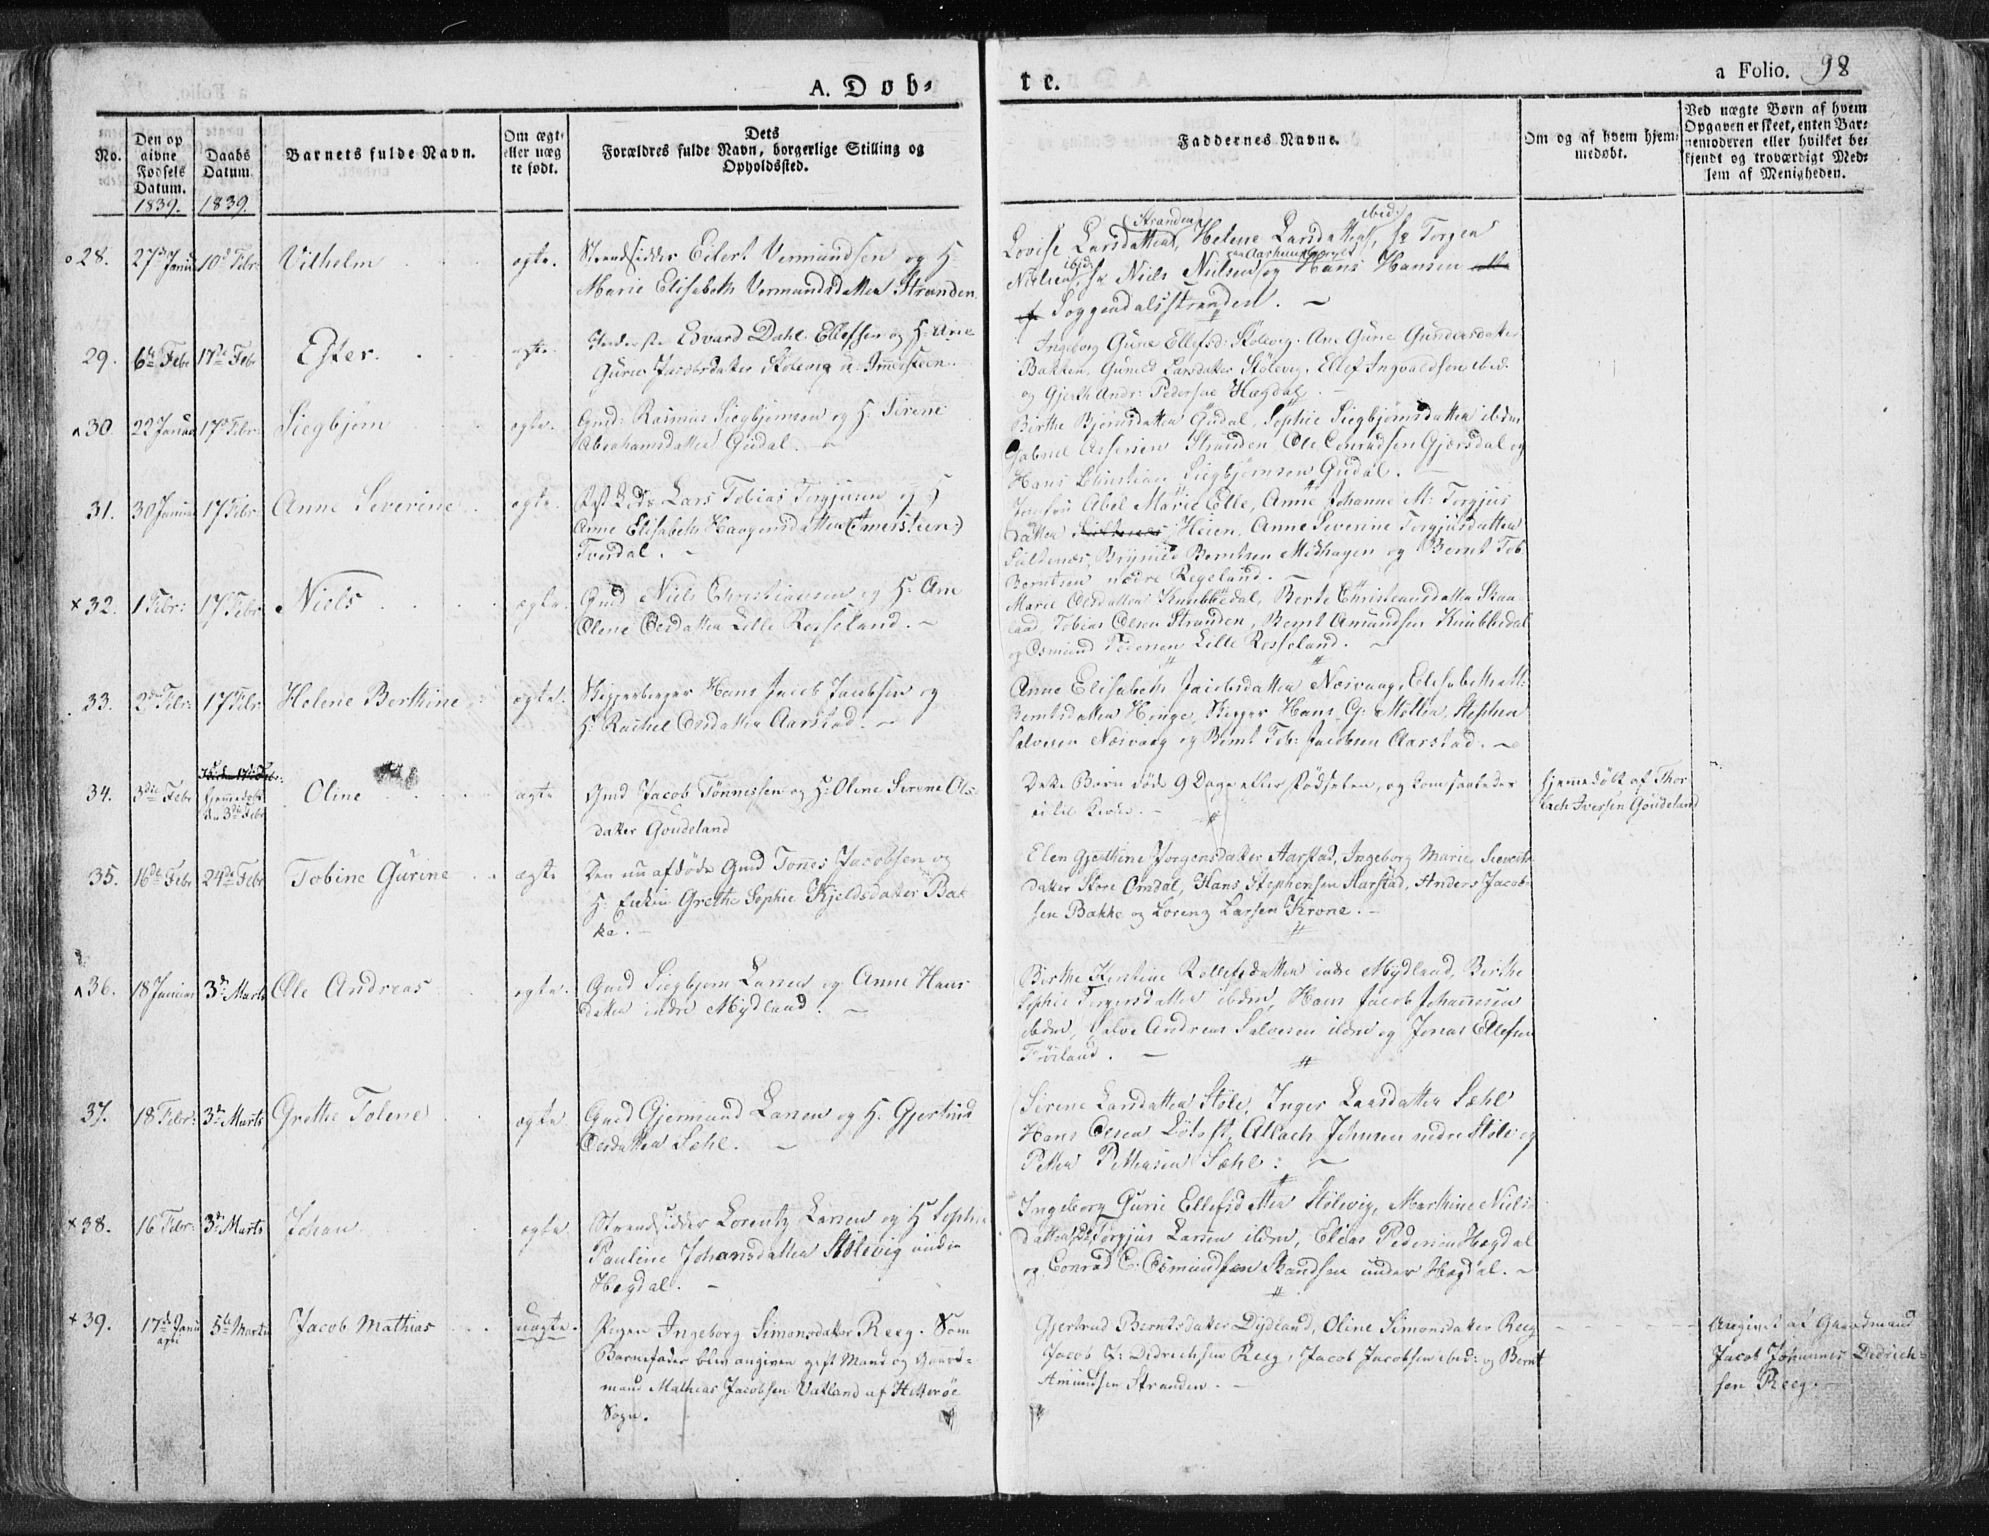 A. Døb-
te.
a Folio. 98
No.
Den op
givne
Fødsels
Datum.
1839.
Daabs
Datum
1839.
Barnets fulde Navn.
Om ægte
eller uæg
te født.
Dets
Forældres fulde Navn, borgerlige Stilling og
Opholdssted.
Faddernes Navne.
Om og af hvem hjem-
medøbt.
Ved uægte Børn af hvem
Opgaven er skeet, enten Bar-
nemoderen eller hvilket be-
kjendt og troværdigt Med-
lem af Menigheden.
28. 27 Janu 10 Febr Vilhelm ægte. Strandsidder Eilert Vermundsen og H:
Marie Elisabeth Vermundsdatter Stranden.
Lovise Larsdatter, Stranden, Helene Larsdatter, ibid:
Nielsen, ibid Niels Nielsen og Hans Hansen
Soggendalsstranden.
29. 6te Febr 17de Febr Ester. ægte. Edvard Dahl Ellefsen og H: Ane
Gurie Jacobsdatter Stölevig
Ingeborg Gurie Ellefsd: Stölevig. Ane Gurie Gundersdatter
Bakken, Gunild Larsdatter Stölevig, Ellef Ingvaldsen ibid:
og Gjerth Andr: Pedersen Hægdal.
30. 22 Januar 17 Febr. Siegbjörn ægte. Gmd: Rasmus Siegbjörnsen og H: Sirene
Abrahamsdatter Gudal.
Birthe Bjørnsdatter Gudal, Sophie Siegbjørnsdatter ibdm
Gabriel Assersen Stranden, Ole Conradsen Gjersdal og
Hans Christian Siegbjørnsen Gudal.
31. 30 Januar 17 Febr Anne Severine ægte. Lars Tobias Torgjusen og H
Anne Elisabeth Haagensdatter (Immersteen)
Tverdal.
Jomfru Abel Marie Elle, Anne Johanne M: Torgjus
datter Heien, Anne Severine Torgjusdatter
Saltenæs, Brynild Berntsen Midhagen og Bernt Tob:
Berntsen nedre Regeland.
32. 1 Febr: 17 Febr Niels ægte. Gmd Niels Christiansen og H: Ane
Olene Olsdatter Lille Rosseland.
Marie Olsdatter Knubbedal, Berte Christiansdatter Skaa
land, Tobias Olsen Stranden, Bernt Amundsen Knubbedal
og Osmund Pedersen Lille Rosseland.
33. 2den Febr: 17 Febr Helene Berthine ægte. Skipperborger Hans Jacob Jacobsen og
H: Rachel Olsdatter Aarstad.
Anne Elisabeth Jacobsdatter Næsvaag, Elisabeth M:
Berntsdatter Hinge, Skipper Hans G: Møller, Stephen
Salvesen Næsvaag og Bernt Tob: Jacobsen Aarstad.
34. 3die Febr hjemmedøbt
den 3die Febr Oline ægte Gmd Jacob Tönnessen og H: Oline Serene Ols-
datter Goudeland
Dette Barn døde 9 Dage efter Fødselen, og kom saaledes
ei til Kirke.
hjemedøbt af Thor
lach Iversen Goudeland
35. 16de Febr 24de Febr Tobine Gurine ægte Den nu afdöde Gmd Tönnes Jacobsen og
H: Enkin Grethe Sophie Kjeldsdatter Bak
ke.
Elen Gjerthine Jørgensdatter Aarstad, Ingeborg Marie Sievert
datter Store Omdal, Hans Stephensen Aarstad, Anders Jacob-
sen Bakke og Lorenz Larsen Krone.
36. 18 Januar 3de Marts Ole Andreas ægte. Gmd Siegbjørn Larsen og Anne Hans
datter indre Mydland.
Birthe Kirstine Rollefsdatter indre Mydland, Birthe
Sophie Torgersdatter ibdm, Hans Jacob Johannesen
ibdm, Salve Andreas Salvesen ibdm og Jonas Ellefsen
Frøiland.
37. 18 Febr: 3de Marts Grethe Tolene ægte Gmd Gjermund Larsen og H. Gjertrud
Olsdatter Sæhl.
Sirene Larsdatter Støle, Inger Larsdatter Sæhl
Hans Olsen Løtoft, Atlach Johnsen nedre Støle og
Petter Pettersen Sæhl:
38. 16 Febr: 3de Marts Johan ægte Strandsidder Lorentz Larsen og H Sophie
Pauline Johansdatter Stölevig under
Hægdal.
Ingeborg Gurie Ellefsdatter Stølevig, Marthine Niels
datter Torgjus Larsen ibdm, Elias Pedersen Hægdal
og Conrad E. Osmundsen Sandsen under Hægdal.
39. 17de Janu
ari 5te Marts Jacob Mathias uægte. Pigen Ingeborg Simonsdatter Reeg. Som
Barnefader blev angiven gift Mand og Gaard-
mand Mathias Jacobsen Vatland af Hitterøe
Sogn.
Gjertrud Berntsdatter Dydland, Oline Simonsdatter Reeg
Jacob J: Didrichsen Reeg, Jacob Jacobsen ibid: og Bernt
Amundsen Stranden.
Angivet af Gaardmand
Jacob Johannes Didrich-
sen Reeg.